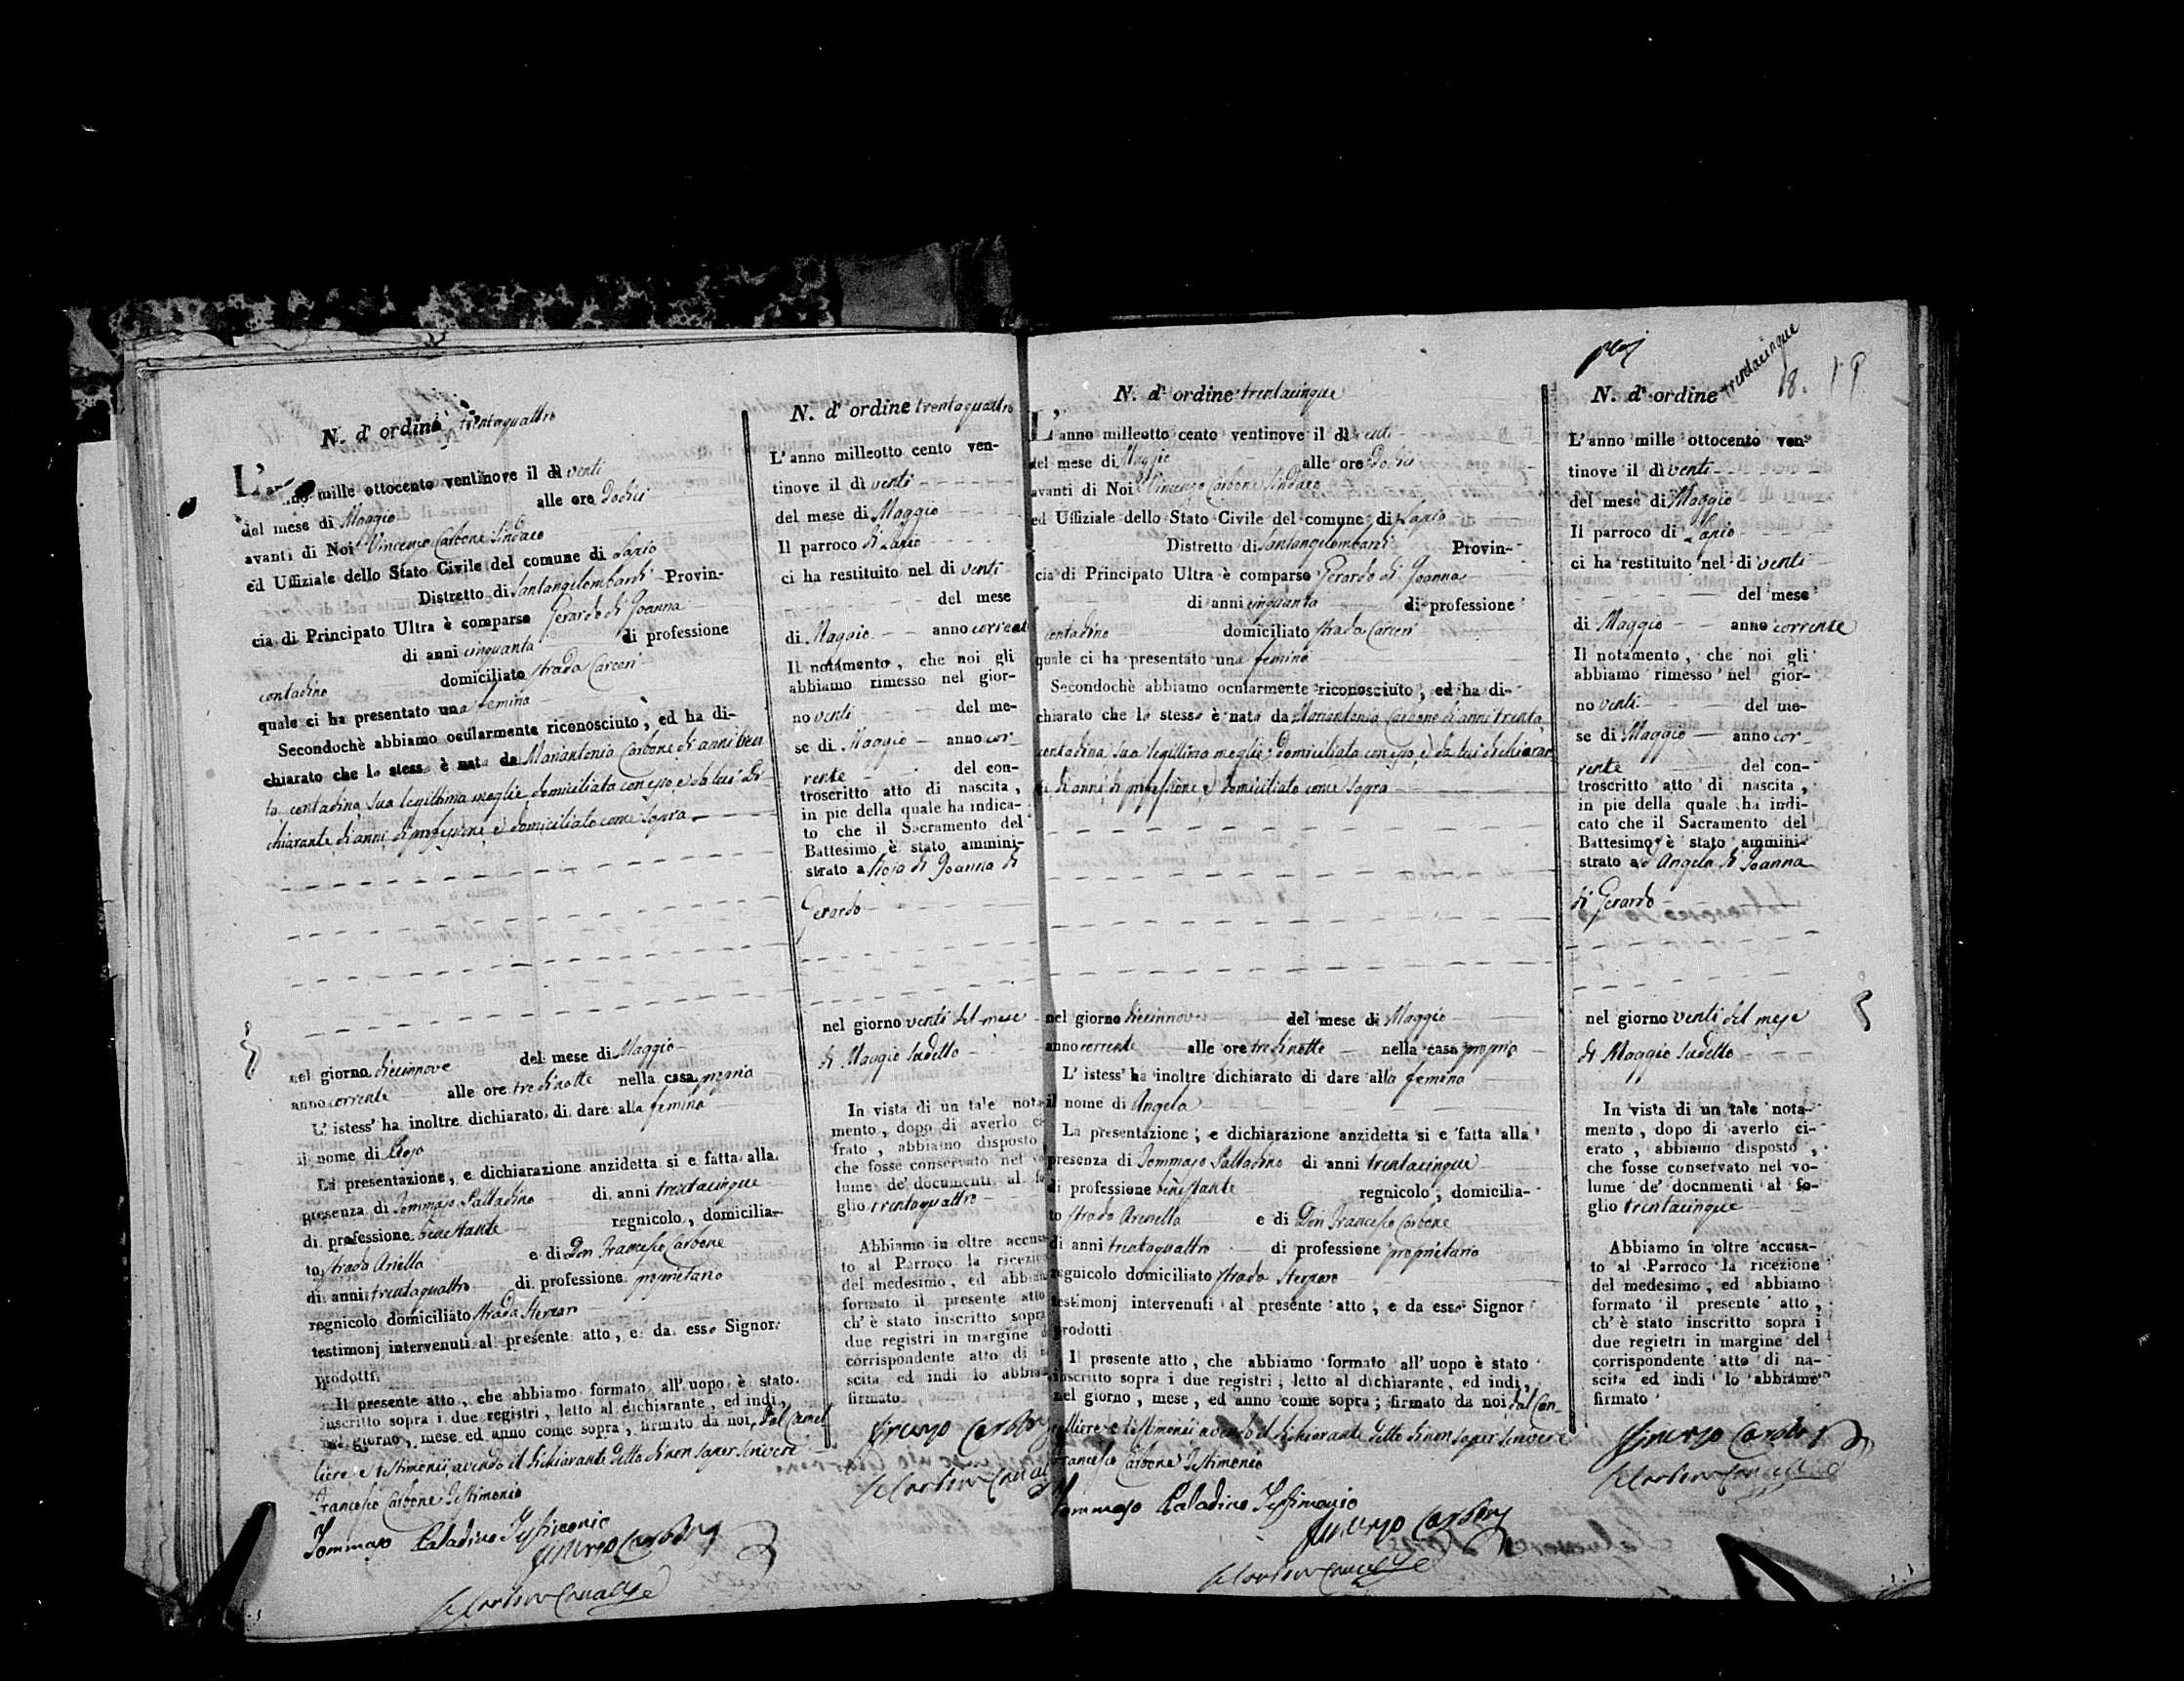 N. d' ordine trentaquattro
L'anno mille ottocento ventinove il dì venti
del mese di Maggio alle ore Dodici
avanti di Noi Vincenzo Carbone Sindaco
ed Uffiziale dello Stato Civile del comune di Lapio
Distretto di Santangelombardi Provin-
cia di Principato Ultra è comparso Gerardo di Joanna
di anni cinquanta di professione
contadino domiciliato strada Carceri
quale ci ha presentato una femina
Secondochè abbiamo ocularmente riconosciuto, ed ha di-
chiarato che la stessa è nata da Mariantonia Carbone di anni tren
ta contadina sua legittima moglie domiciliata con esso, e da lui di-
chiarante di anni di professione, e domiciliato come sopra
nel giorno diecinnove del mese di Maggio
anno corrente alle ore tre di notte nella casa propria
L' istess' ha inoltre dichiarato di dare alla femina
il nome di
La presentazione, e dichiarazione anzidetta si e fatta alla
presenza di Tommaso Palladino di anni trentacinque
di professione benestante regnicolo, domicilia-
to strada Ariella e di Don Francesco Carbone
di anni trentaquattro di professione proprietario
regnicolo domiciliato strada
testimonj intervenuti al presente atto, e da esso Signor
prodotti.
Il presente atto, che abbiamo formato all' uopo è stato
inscritto sopra i due registri, letto al dichiarante, ed indi,
nel giorno, mese ed anno come sopra, firmato da noi, dal Cancel
liere e testimonii avendo il dichiarante detto di non saper scrivere
Francesco Carbone Testimonio
Tommaso Paladino Testimonio
Vincenzo Carbone
N. d' ordine trentaquattro
L'anno milleotto cento ven-
tinove il dì venti
del mese di Maggio
Il parroco di Lapio
ci ha restituito nel di venti
del mese
di Maggio anno corrente
Il notamento, che noi gli
abbiamo rimesso nel gior-
no venti del me-
se di Maggio anno cor-
rente del con-
troscritto atto di nascita,
in pie della quale ha indica-
to che il Sacramento del
Battesimo è stato ammini-
strato a di Joanna di
Gerardo
nel giorno venti del mese
di Maggio sudetto
In vista di un tale nota-
mento, dopo di averlo ci-
frato, abbiamo disposto
che fosse conservato nel vo
lume de' documenti al fo
glio trentaquattro
Abbiamo in oltre accusa
to al Parroco la ricezio
del medesimo, ed abbiam
formato il presente atto
ch' è stato inscritto sopra
due registri in margine d
corrispondente atto di na
scita ed indi lo abbiam
firmato
Vincenzo Carbone
N. d' ordine trentacinque
L'anno milleotto cento ventinove il dì venti
del mese di Maggio alle ore Dodici
avanti di Noi Vincenzo Carbone Sindaco
ed Uffiziale dello Stato Civile del comune di Lapio
Distretto di Santangelombardi Provin-
cia di Principato Ultra è comparso Gerardo di Joanna
di anni cinquanta di professione
contadino domiciliato strada Carceri
quale ci ha presentato una femina
Secondochè abbiamo ocularmente riconosciuto, ed ha di-
chiarato che la stessa è nata da Mariantonia Carbone di anni trenta
contadina sua legittima moglie, domiciliata con esso, e da lui dichiaran
te di anni di professione e domiciliato come sopra
nel giorno diecinnove del mese di Maggio
anno corrente alle ore tre di notte nella casa propria
L' istess' ha inoltre dichiarato di dare alla femina
il nome di Angela
La presentazione; e dichiarazione anzidetta si e fatta alla
presenza di Tommaso Palladino di anni trentacinque
di professione benestante regnicolo, domicilia-
to strada Arenella e di Don Francesco Carbone
di anni trentaquattro di professione proprietario
regnicolo domiciliato strada
testimonj intervenuti al presente atto, e da esso Signor
prodotti
Il presente atto, che abbiamo formato all' uopo è stato
inscritto sopra i due registri, letto al dichiarante, ed indi,
nel giorno, mese, ed anno come sopra; firmato da noi dal Can-
celliere e testimonii avendo il dichiarante detto di non saper scrivere
Francesco Carbone Testimonio
Tommaso Paladino Testimonio
Vincenzo Carbone
18. 19
N. d' ordine trentacinque
L'anno mille ottocento ven-
tinove il dì venti
del mese di Maggio
Il parroco di Lapio
ci ha restituito nel di venti
del mese
di Maggio anno corrente
Il notamento, che noi gli
abbiamo rimesso nel gior-
no venti del me-
se di Maggio anno cor-
rente del con-
troscritto atto di nascita,
in pie della quale ha indi-
cato che il Sacramento del
Battesimo è stato ammini-
strato ad Angela di Joanna
di Gerardo
nel giorno venti del mese
di Maggio sudetto
In vista di un tale nota-
mento, dopo di averlo ci-
erato, abbiamo disposto,
che fosse conservato nel vo-
lume de' documenti al fo-
glio trentacinque
Abbiamo in oltre accusa-
to al Parroco la ricezione
del medesimo, ed abbiamo
formato il presente atto,
ch' è stato inscritto sopra i
due registri in margine del
corrispondente atto di na-
scita ed indi lo abbiamo
firmato
Vincenzo Carbone